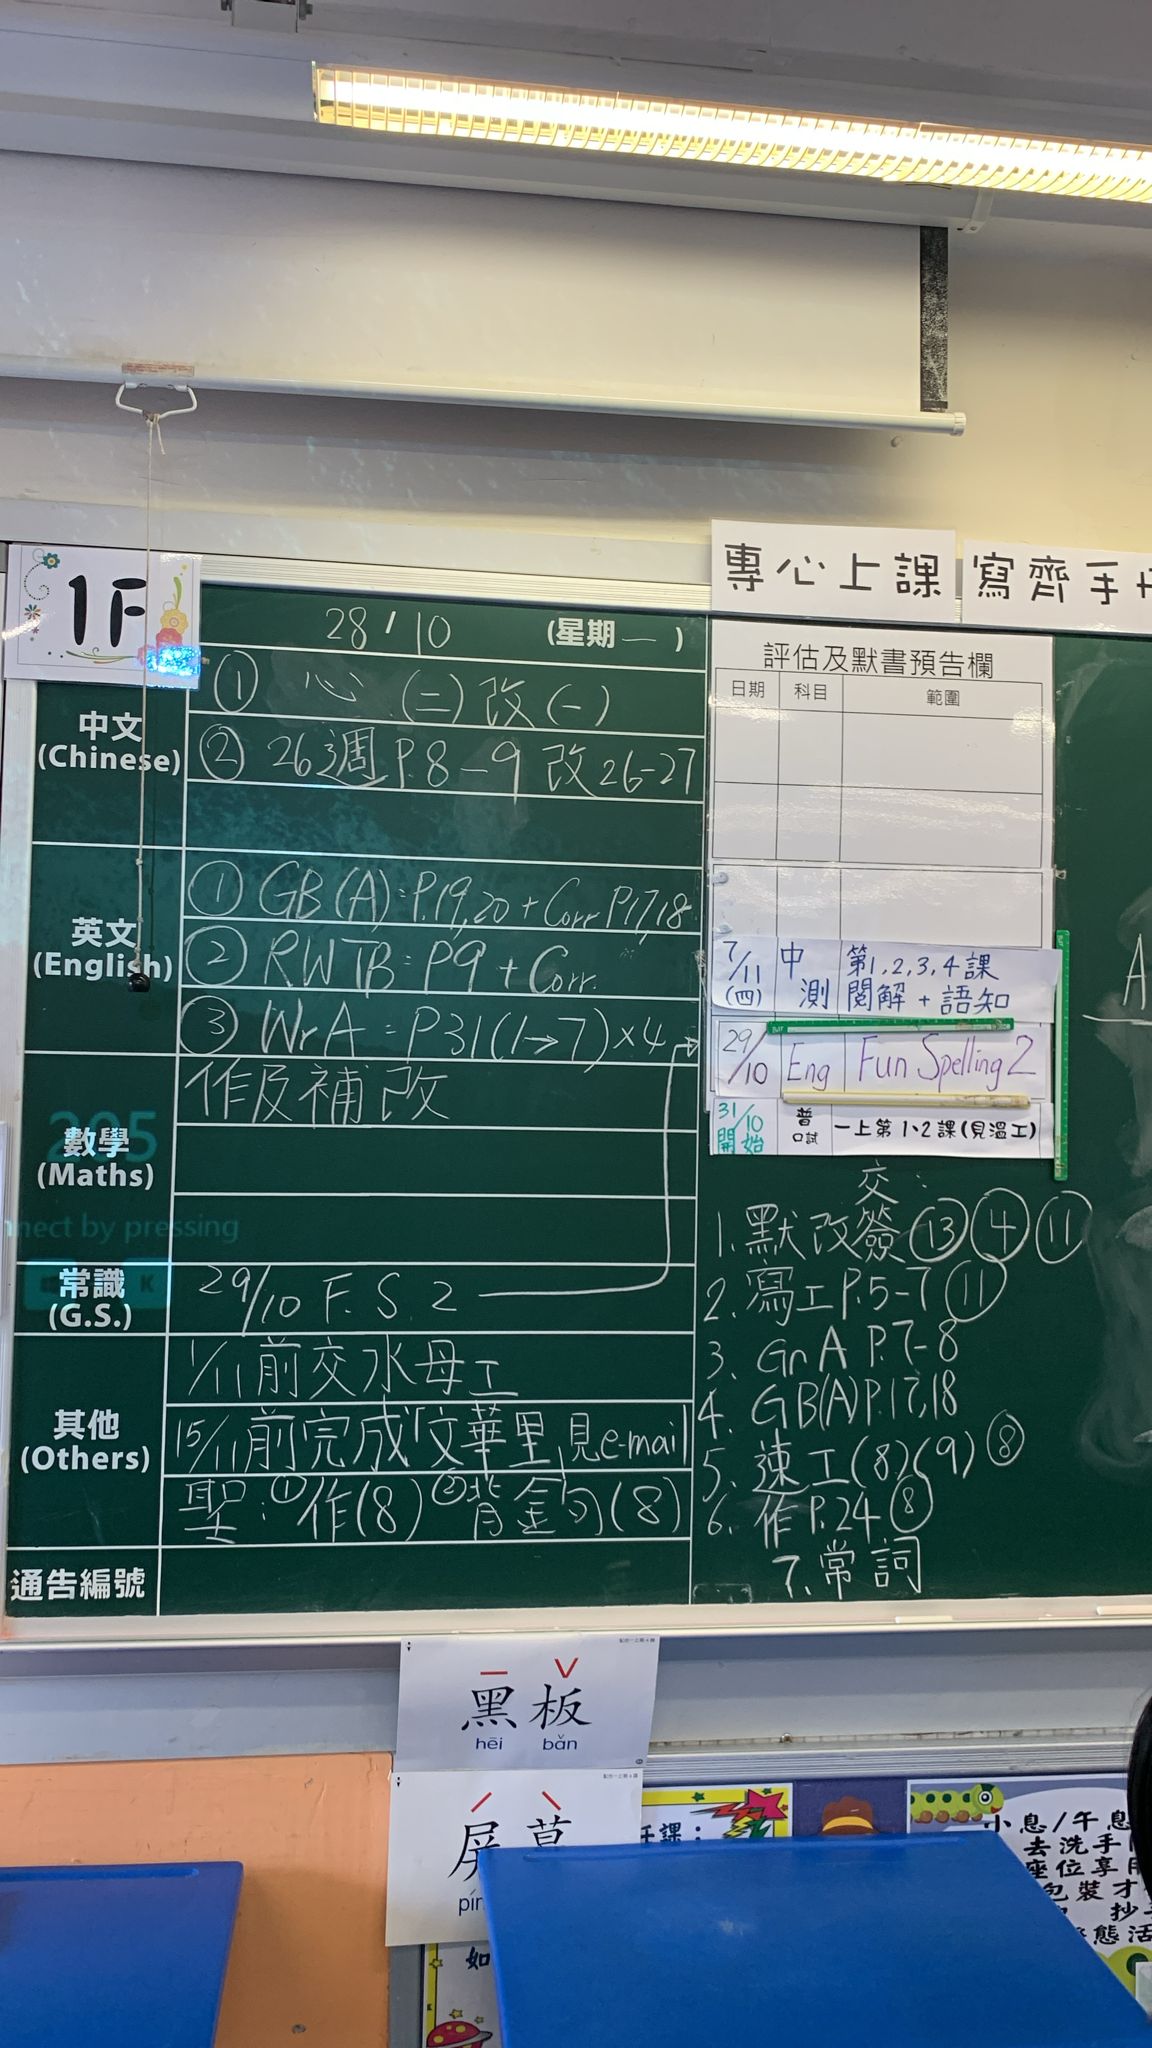 專心上課 寫齊手
1F
28/10 (星期一)
中文
(Chinese)
① 心 (二) 改 (一)
② 26週 P.8-9 改 26-27
英文
(English)
① GB(A): P.19,20 + Corr P17,18
② RWTB: P9 + Corr.
③ Wr A = P31(1→7)×4
數學
(Maths)
作及補改
常識
(G.S.)
29/10 F.S.2
其他
(Others)
1/11前交水母工
15/11前完成「文華里,見e-mail
聖:①作(8) ②背金句(8)
通告編號
205
nnect by pressing
K
評估及默書預告欄
日期 科目 範圍
7/11 (四) 中測 第1,2,3,4課 閱解 + 語知
29/10 Eng Fun Spelling 2
31/10 開始 普口試 一上第1、2課(見溫工)
交:
1. 默改簽 ⑬ ④ ⑪
2. 寫工 P.5-7 ⑪
3. Gr A P.7-8
4. GB(A)P.17,18
5. 速工(8)(9) ⑧
6. 作P.24 ⑧
7. 常詞
A
黑板
hēi bǎn
屏幕
小息/午息
去洗手
座位享用
包裝才
抄
態活
如